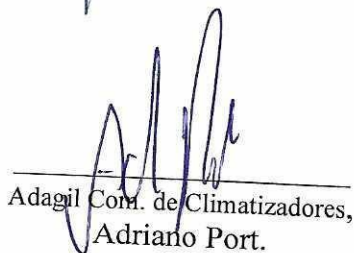 Adagil Com. de Climatizadores,
Adriano Port.